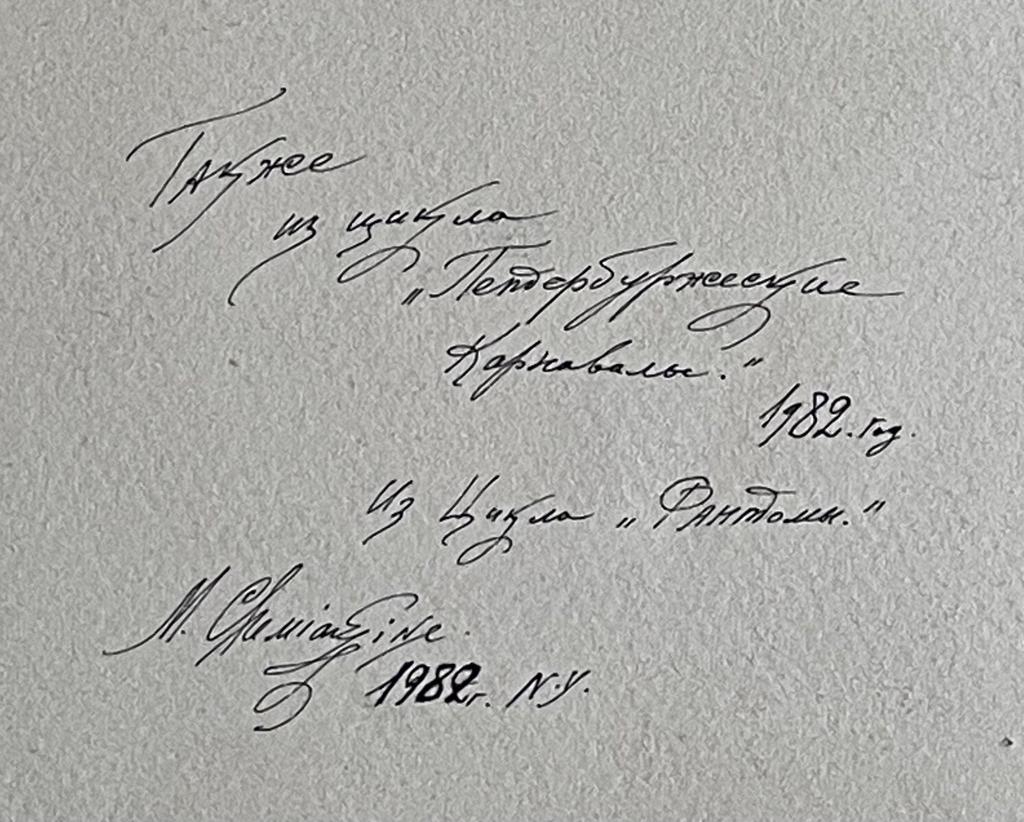 Также
из цикла
„Петербуржеские
Карнавалы."
1982. год.
Из Цикла „Фантомы."
M. Chemiakine.
1982г. N.Y.